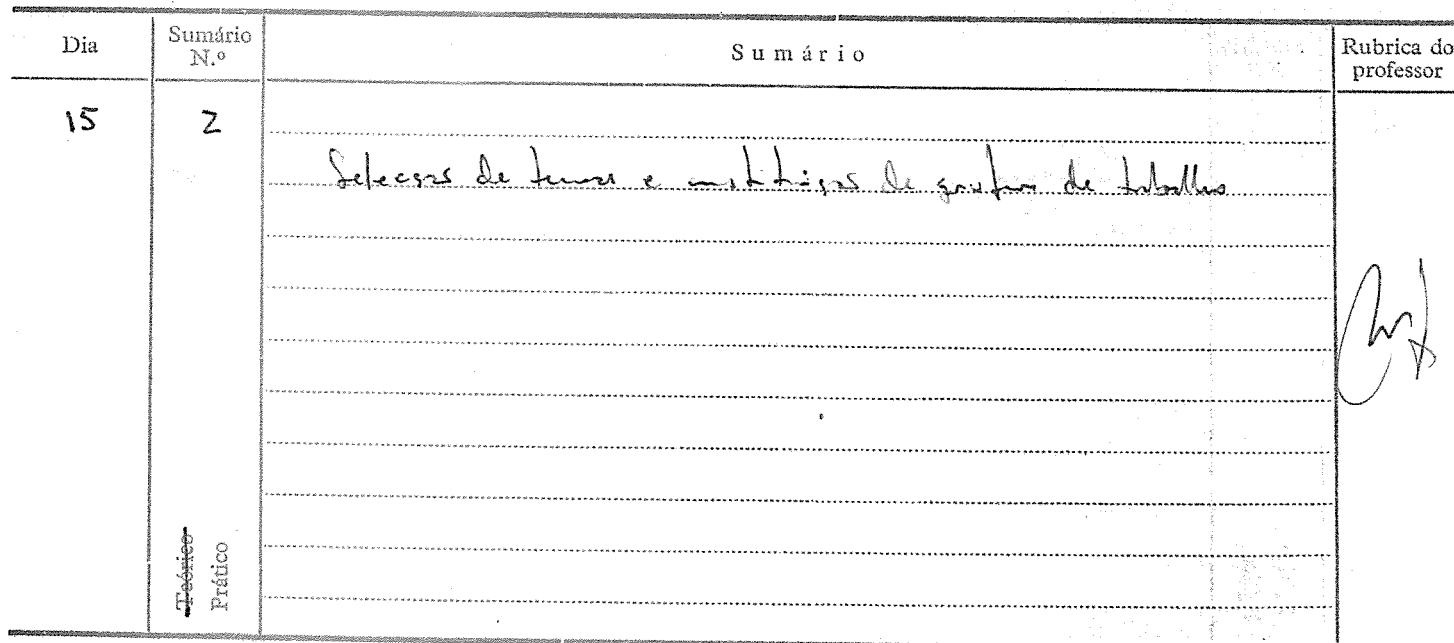 Dia
Sumário N.º
Sumário
Rubrica do professor
15
2
Selecção de temas e constituição de grupos de trabalho
Teórico
Prático